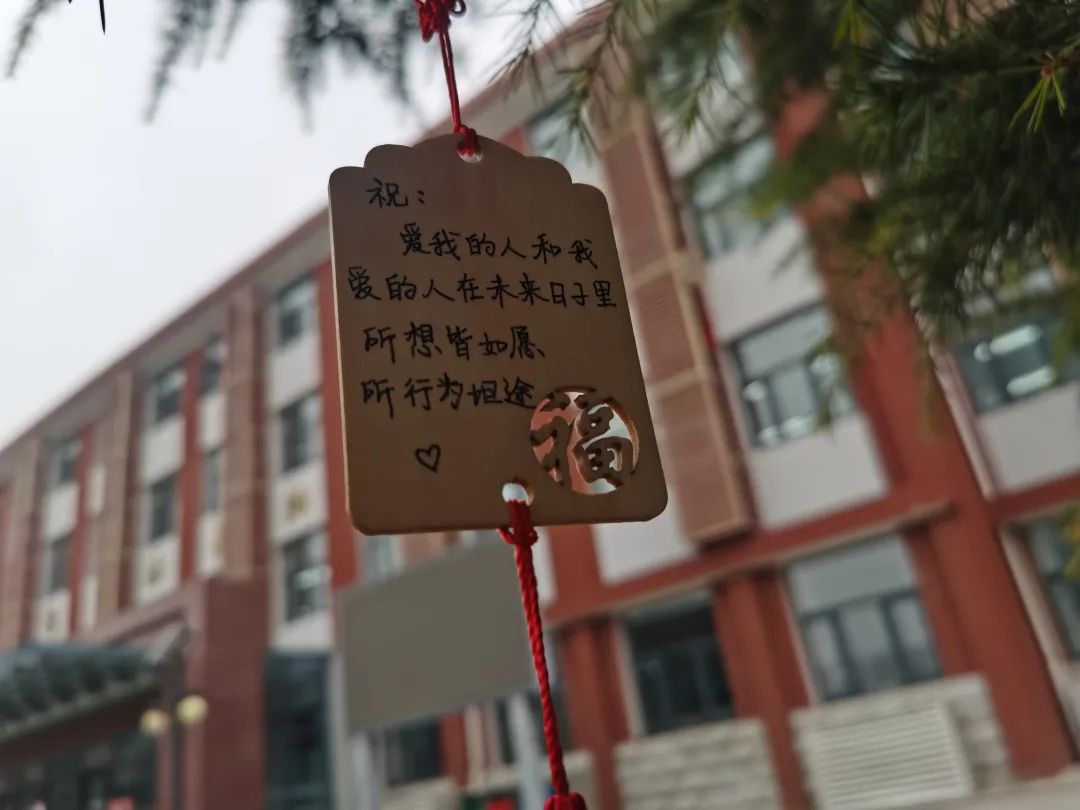 祝：
爱我的人和我
爱的人在未来日子里
所想皆如愿
所行为坦途
♡
福